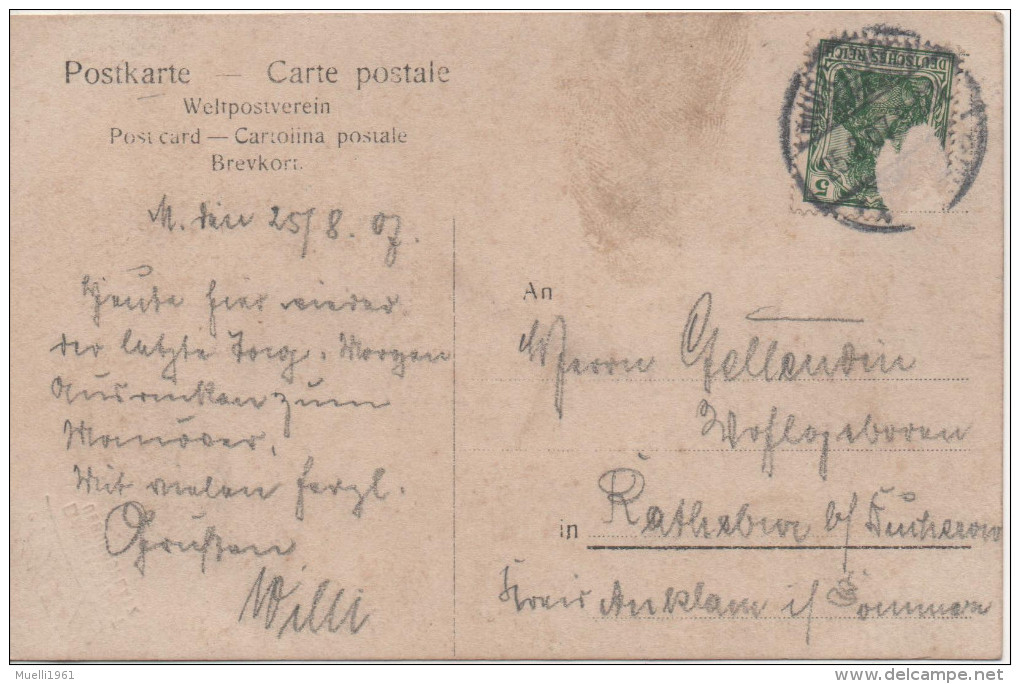 Postkarte — Carte postale
Weltpostverein
Post card — Cartolina postale
Brevkort.
M. den 25/8. 07.
Heute hier wieder
der letzte Tag. Morgen
Ausrücken zum
Manöver.
Mit vielen herzl.
Grüßen
Willi
DEUTSCHES REICH
5
An
Herrn Gellendin
Wohlgeboren
in Rathebur b/ Ducherow
Kreis Anklam i/ Pommern
Muelli1961
delcampe.net